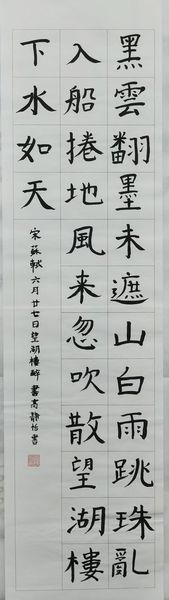 黑雲翻墨未遮山白雨跳珠亂
入船捲地風来忽吹散望湖樓
下水如天
宋蘇軾六月廿七日望湖樓醉書高靜怡書